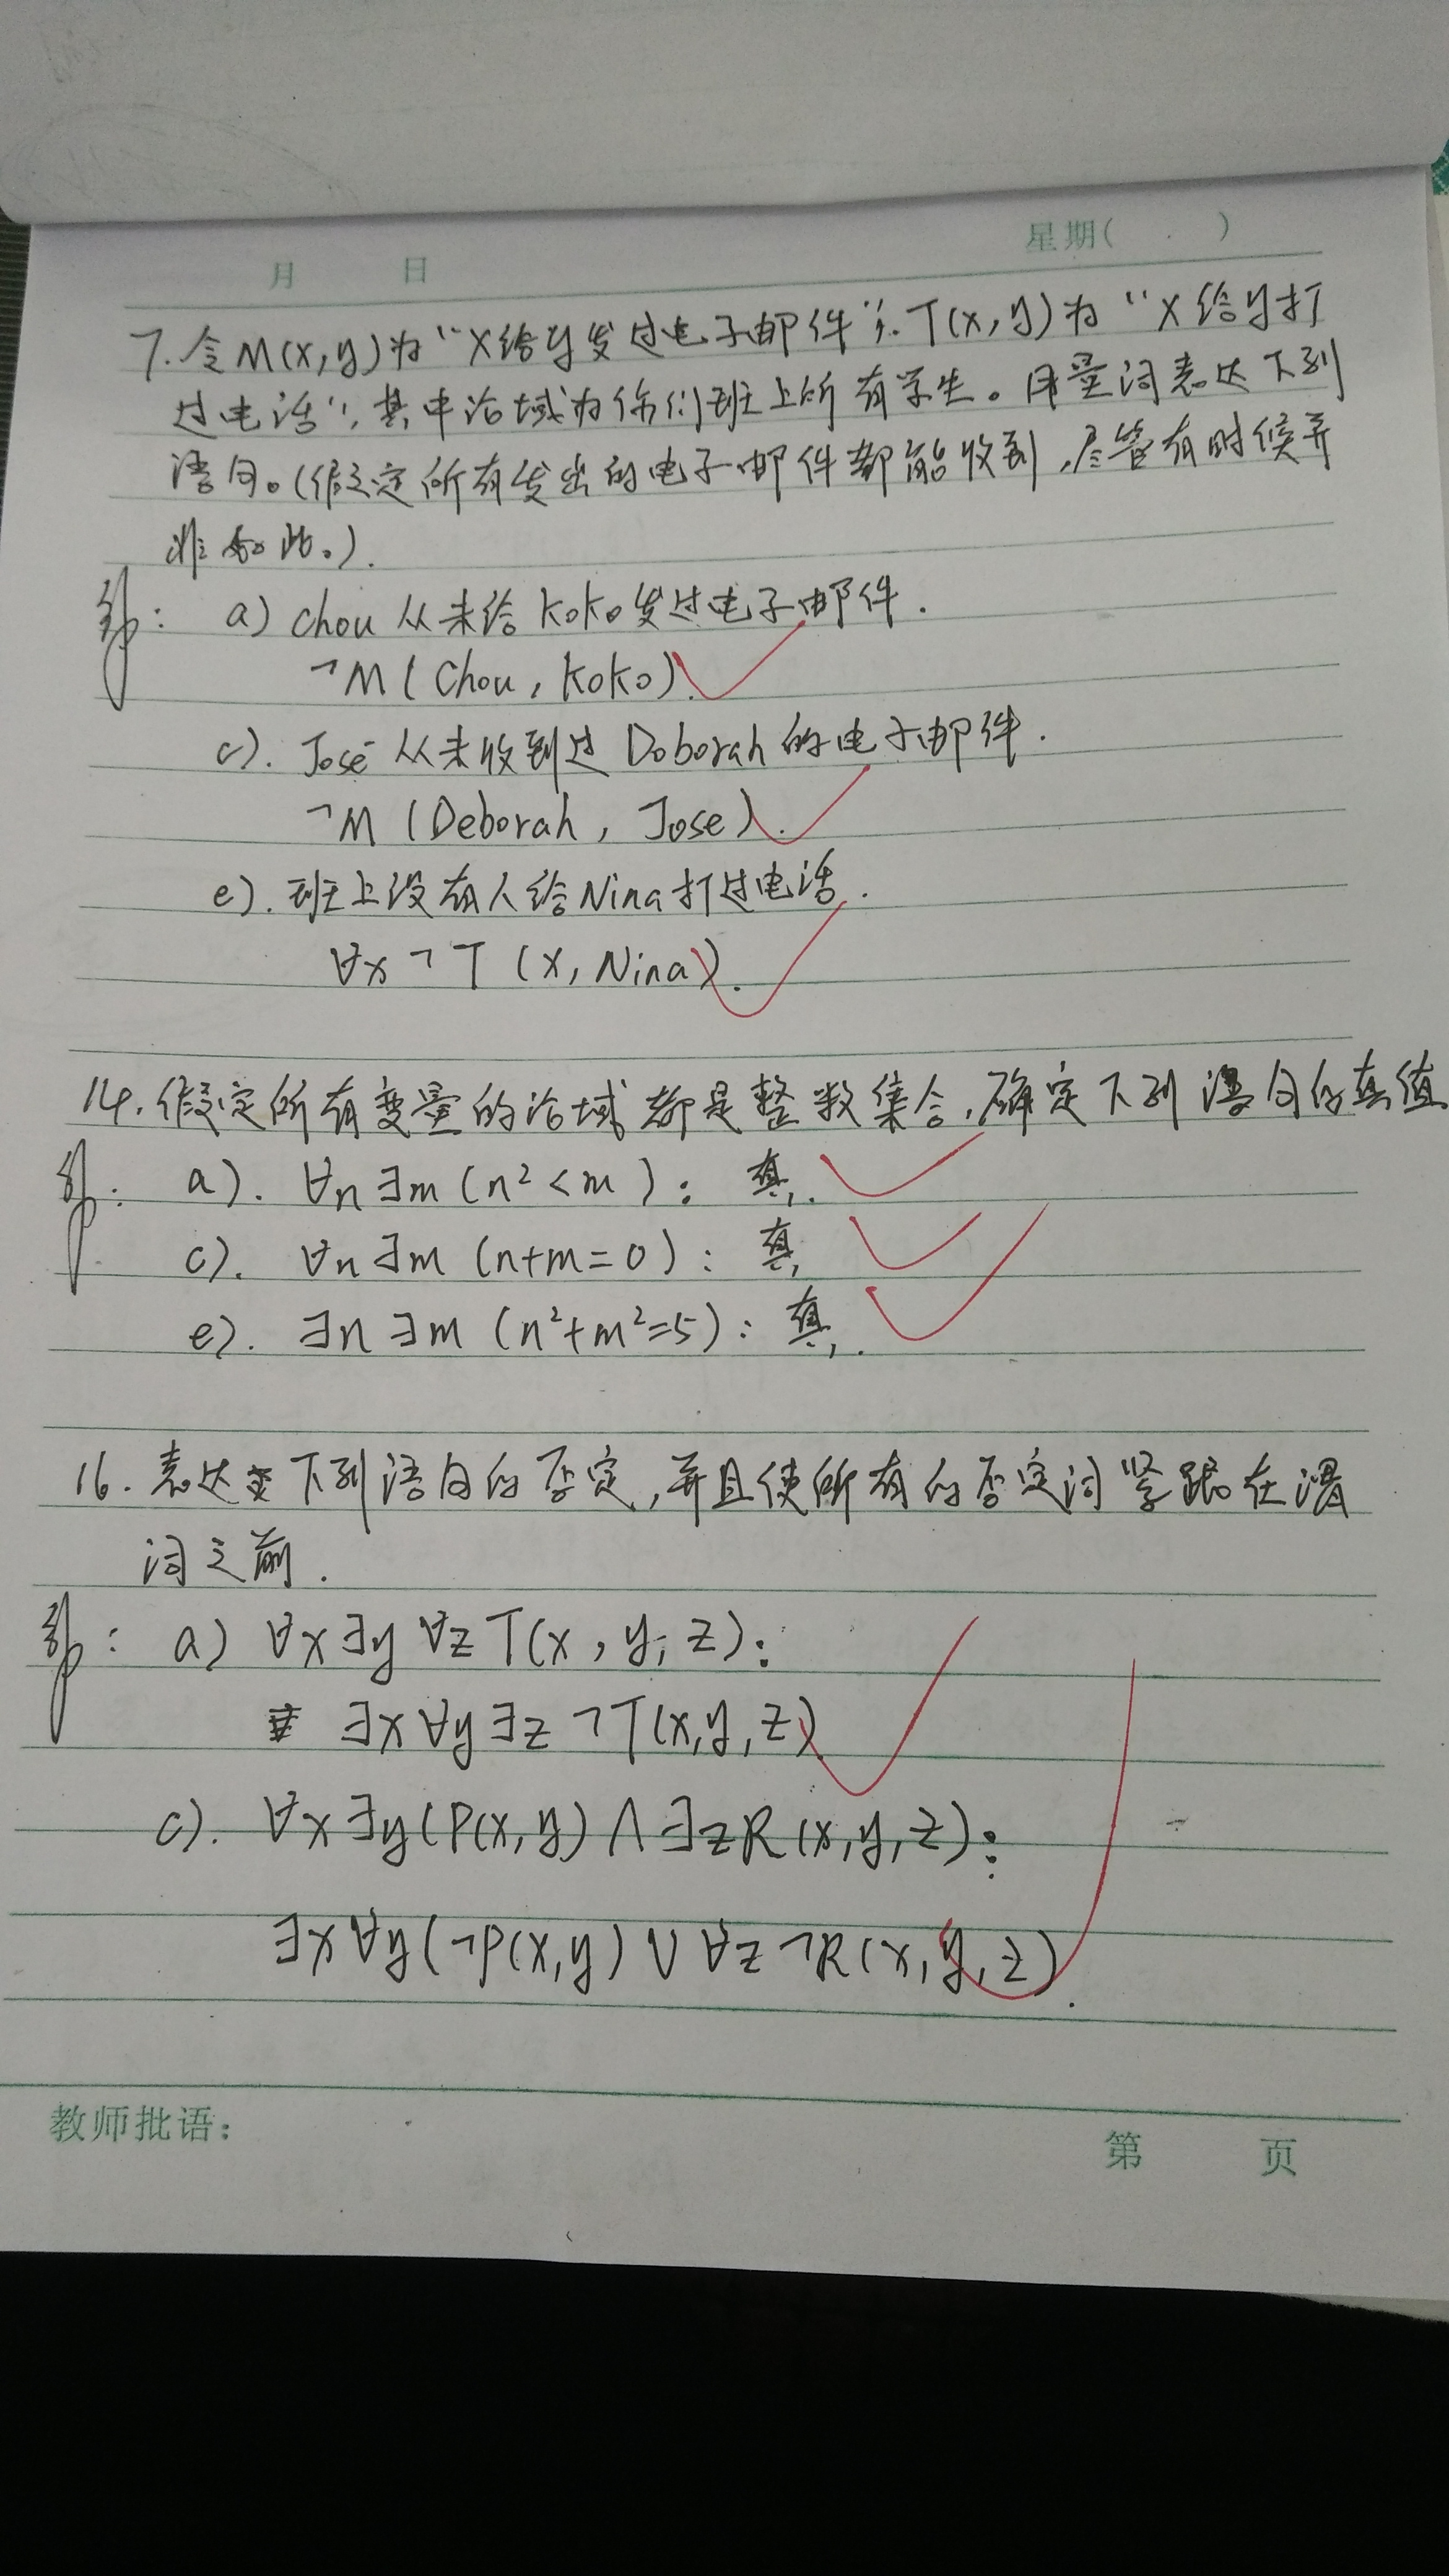 月 日 星期( )
7.令M(x,y)为“x给y发过电子邮件”,T(x,y)为“x给y打
过电话”,其中论域为你们班上所有学生。用量词表达下列
语句。(假定所有发出的电子邮件都能收到,尽管有时候并
非如此。).
解: a) Chou 从未给 KoKo发过电子邮件.
¬M(Chou, KoKo).
c). José 从未收到过 Doborah 的电子邮件.
¬M(Deborah, Jose).
e). 班上没有人给Nina打过电话.
∀x¬T(x, Nina).
14.假定所有变量的论域都是整数集合,确定下列语句的真值
解: a). ∀n∃m(n²<m): 真.
c). ∀n∃m(n+m=0): 真
e). ∃n∃m(n²+m²=5): 真.
16.表达下列语句的否定,并且使所有的否定词紧跟在谓
词之前.
解: a) ∀x∃y∀zT(x,y,z):
∃x∀y∃z¬T(x,y,z).
c). ∀x∃y(P(x,y)∧∃zR(x,y,z):
∃x∀y(¬P(x,y)∨∀z¬R(x,y,z).
教师批语: 第 页